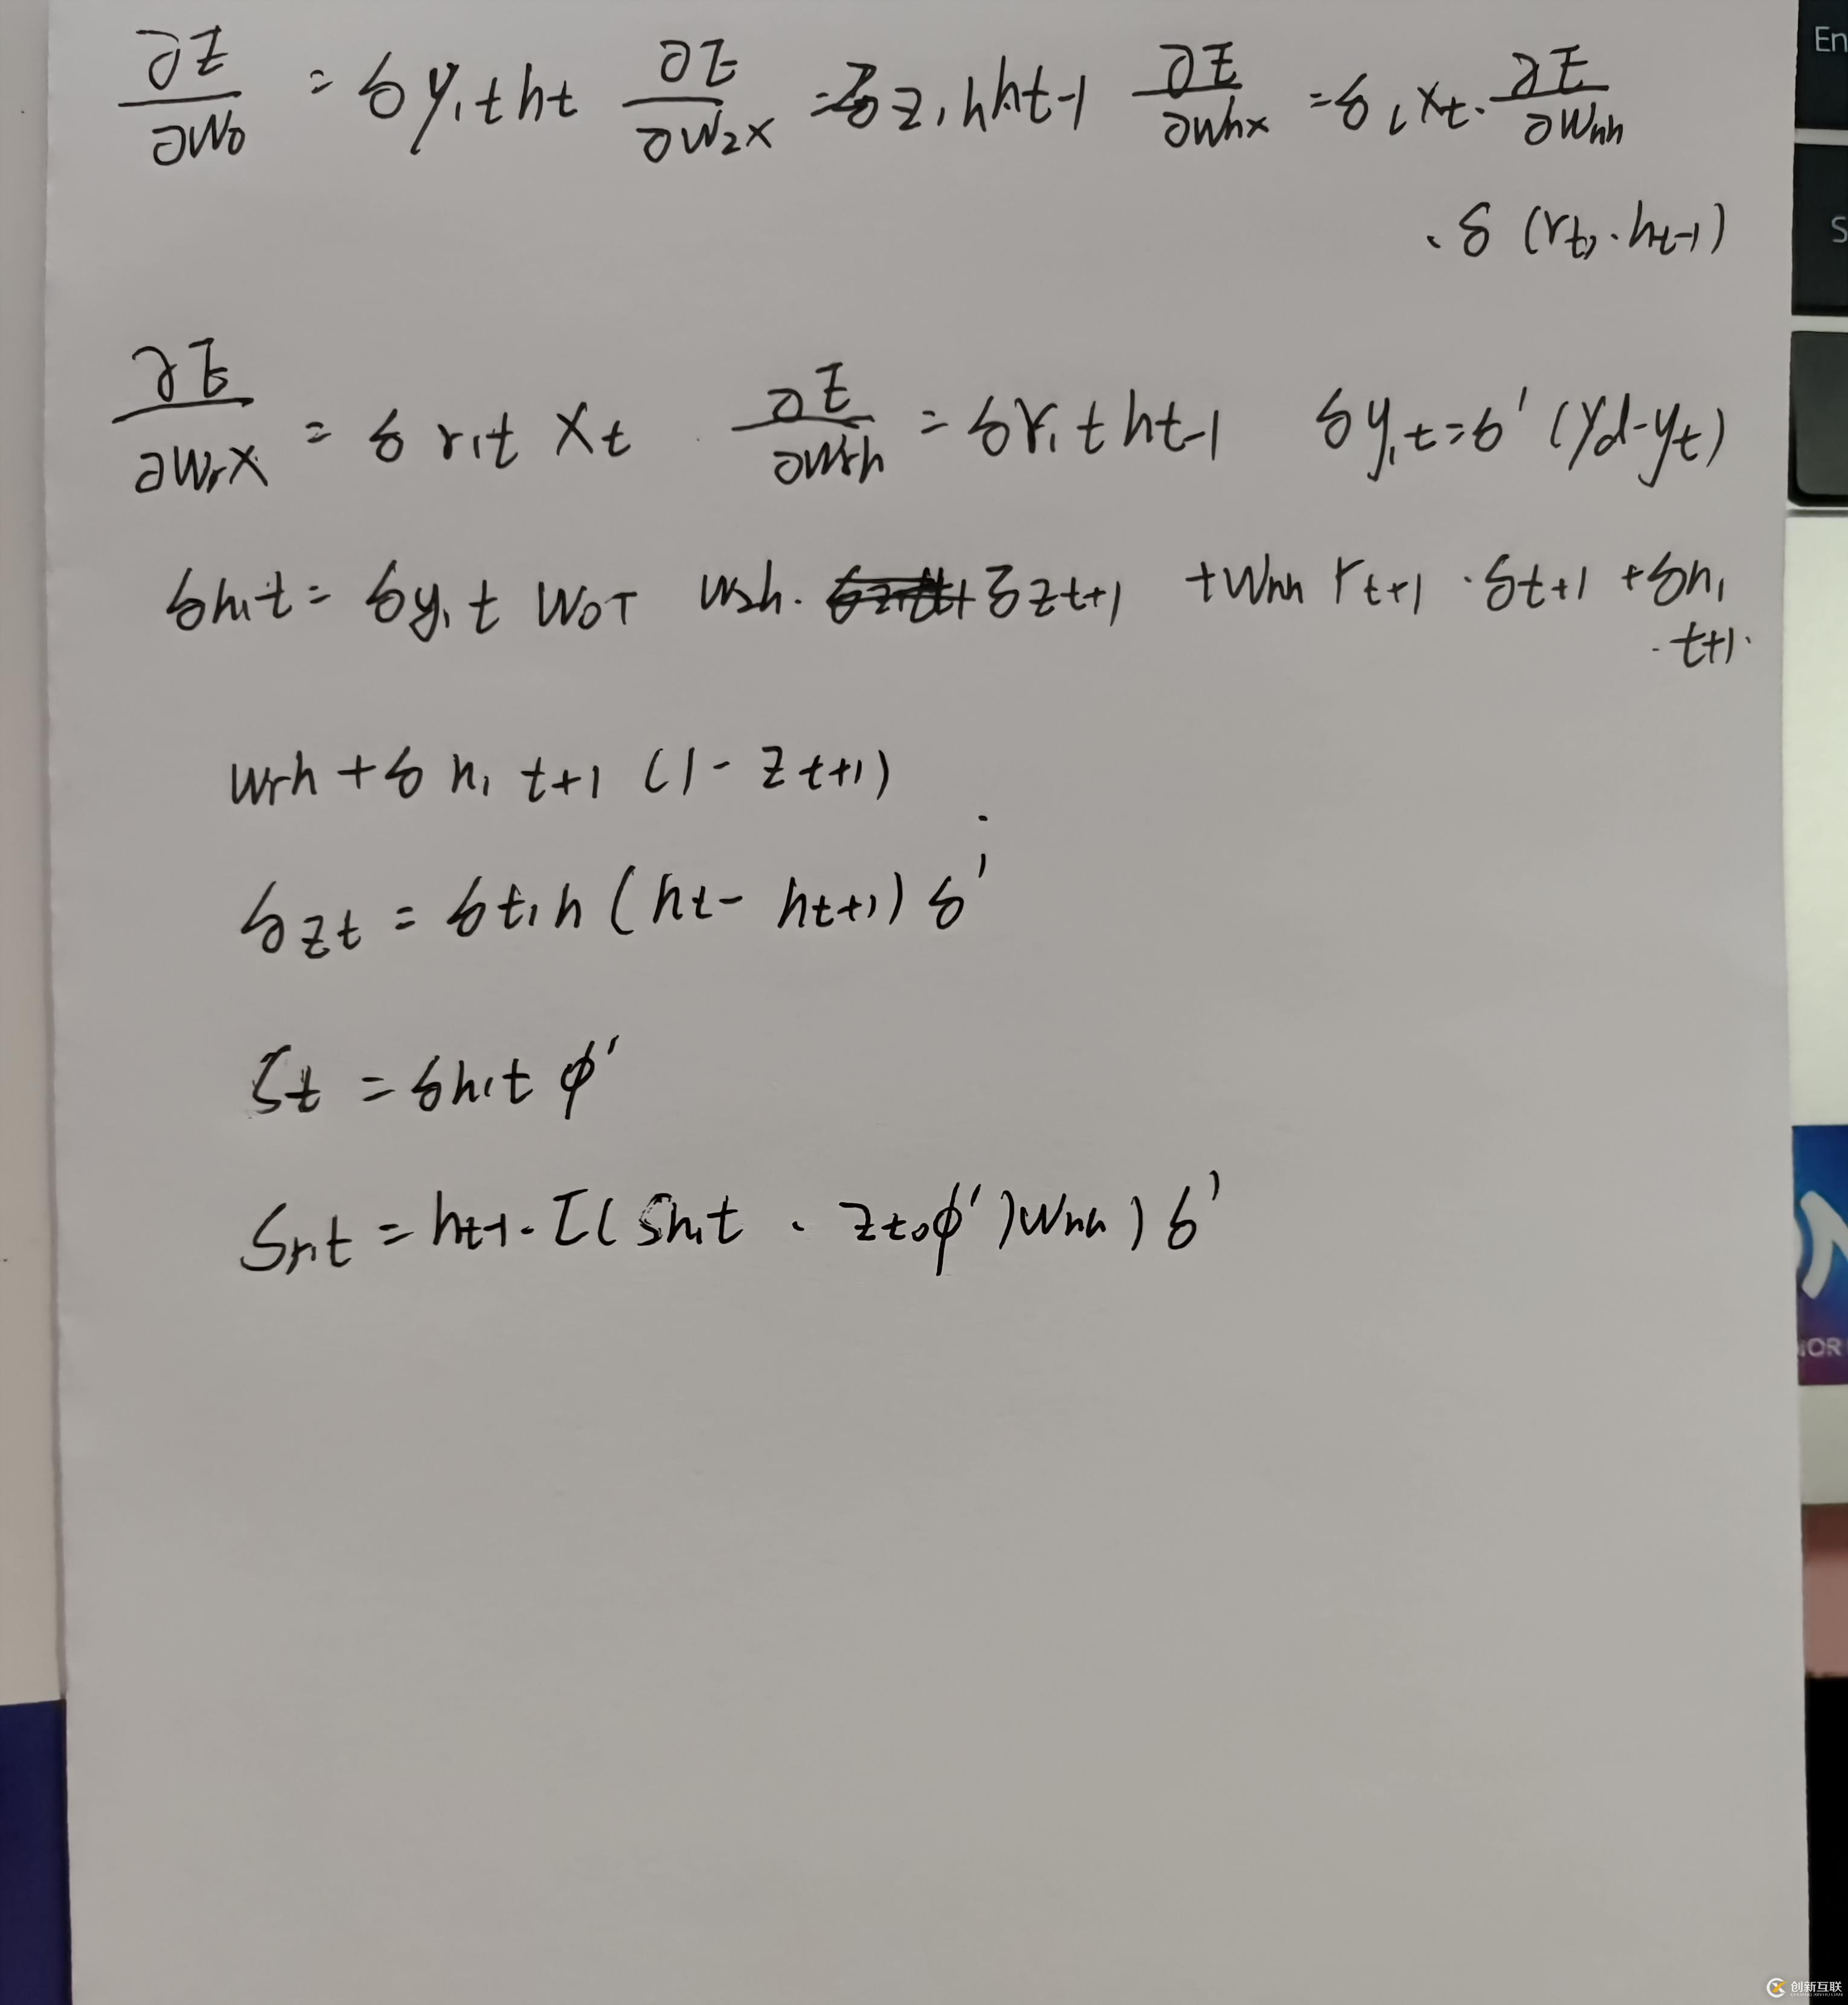 ∂E/∂W₀ = δy,t ht ∂E/∂Wzx = δz,h ht-1 ∂E/∂Whx = δ,xt · ∂E/∂Whh
· δ (rt, · ht-1)
∂E/∂Wrx = δ r,t xt · ∂E/∂Wrh = δr,t ht-1 δy,t = δ' (yd-yt)
δh,t = δy,t WoT Wzh. δzt+1 +Whh rt+1 · δt+1 + δh,
· t+1.
Wrh + δ h, t+1 (1 - zt+1)
δzt = δt,h (ht - ht+1) δ'
δt = δh,t φ'
Sr,t = ht-1 · [( Sh,t · zt φ' ) Whh ) δ'
En
S
创新互联